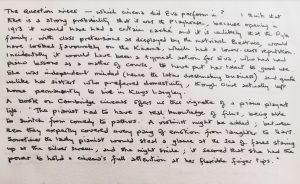 The question arises — which cinema did Eva perform in? I think that
there is a strong probability that it was the Playhouse, because opening in
1913 it would have had a certain cachet and it is unlikely that the
family, with class preferences as displayed by the national theatres, would
have looked favourably on the Kinema, which had a lower-class reputation.
Incidentally it would have been a typical action for Eva, who had had
piano lessons as a matter of course, to have put her heart to good use.
She was independent minded (hence the looks downswing business), and quite
unlike her sister who preferred domesticity, though Olive actually left
home permanently to live in Kings Langley.
A book on Cambridge cinemas offers us this vignette of a piano player's
life: "The pianist had to have a real knowledge of films, being able
to switch from comedy to pathos. A violinist might be added; between
them they expertly covered every pang of emotion from laughter to tears.
Sometimes the lady pianist would steal a glance at the sea of faces staring
up at the silver screen, and she might smile; it seemed that she had the
power to hold a cinema's full attention at her flexible finger tips."